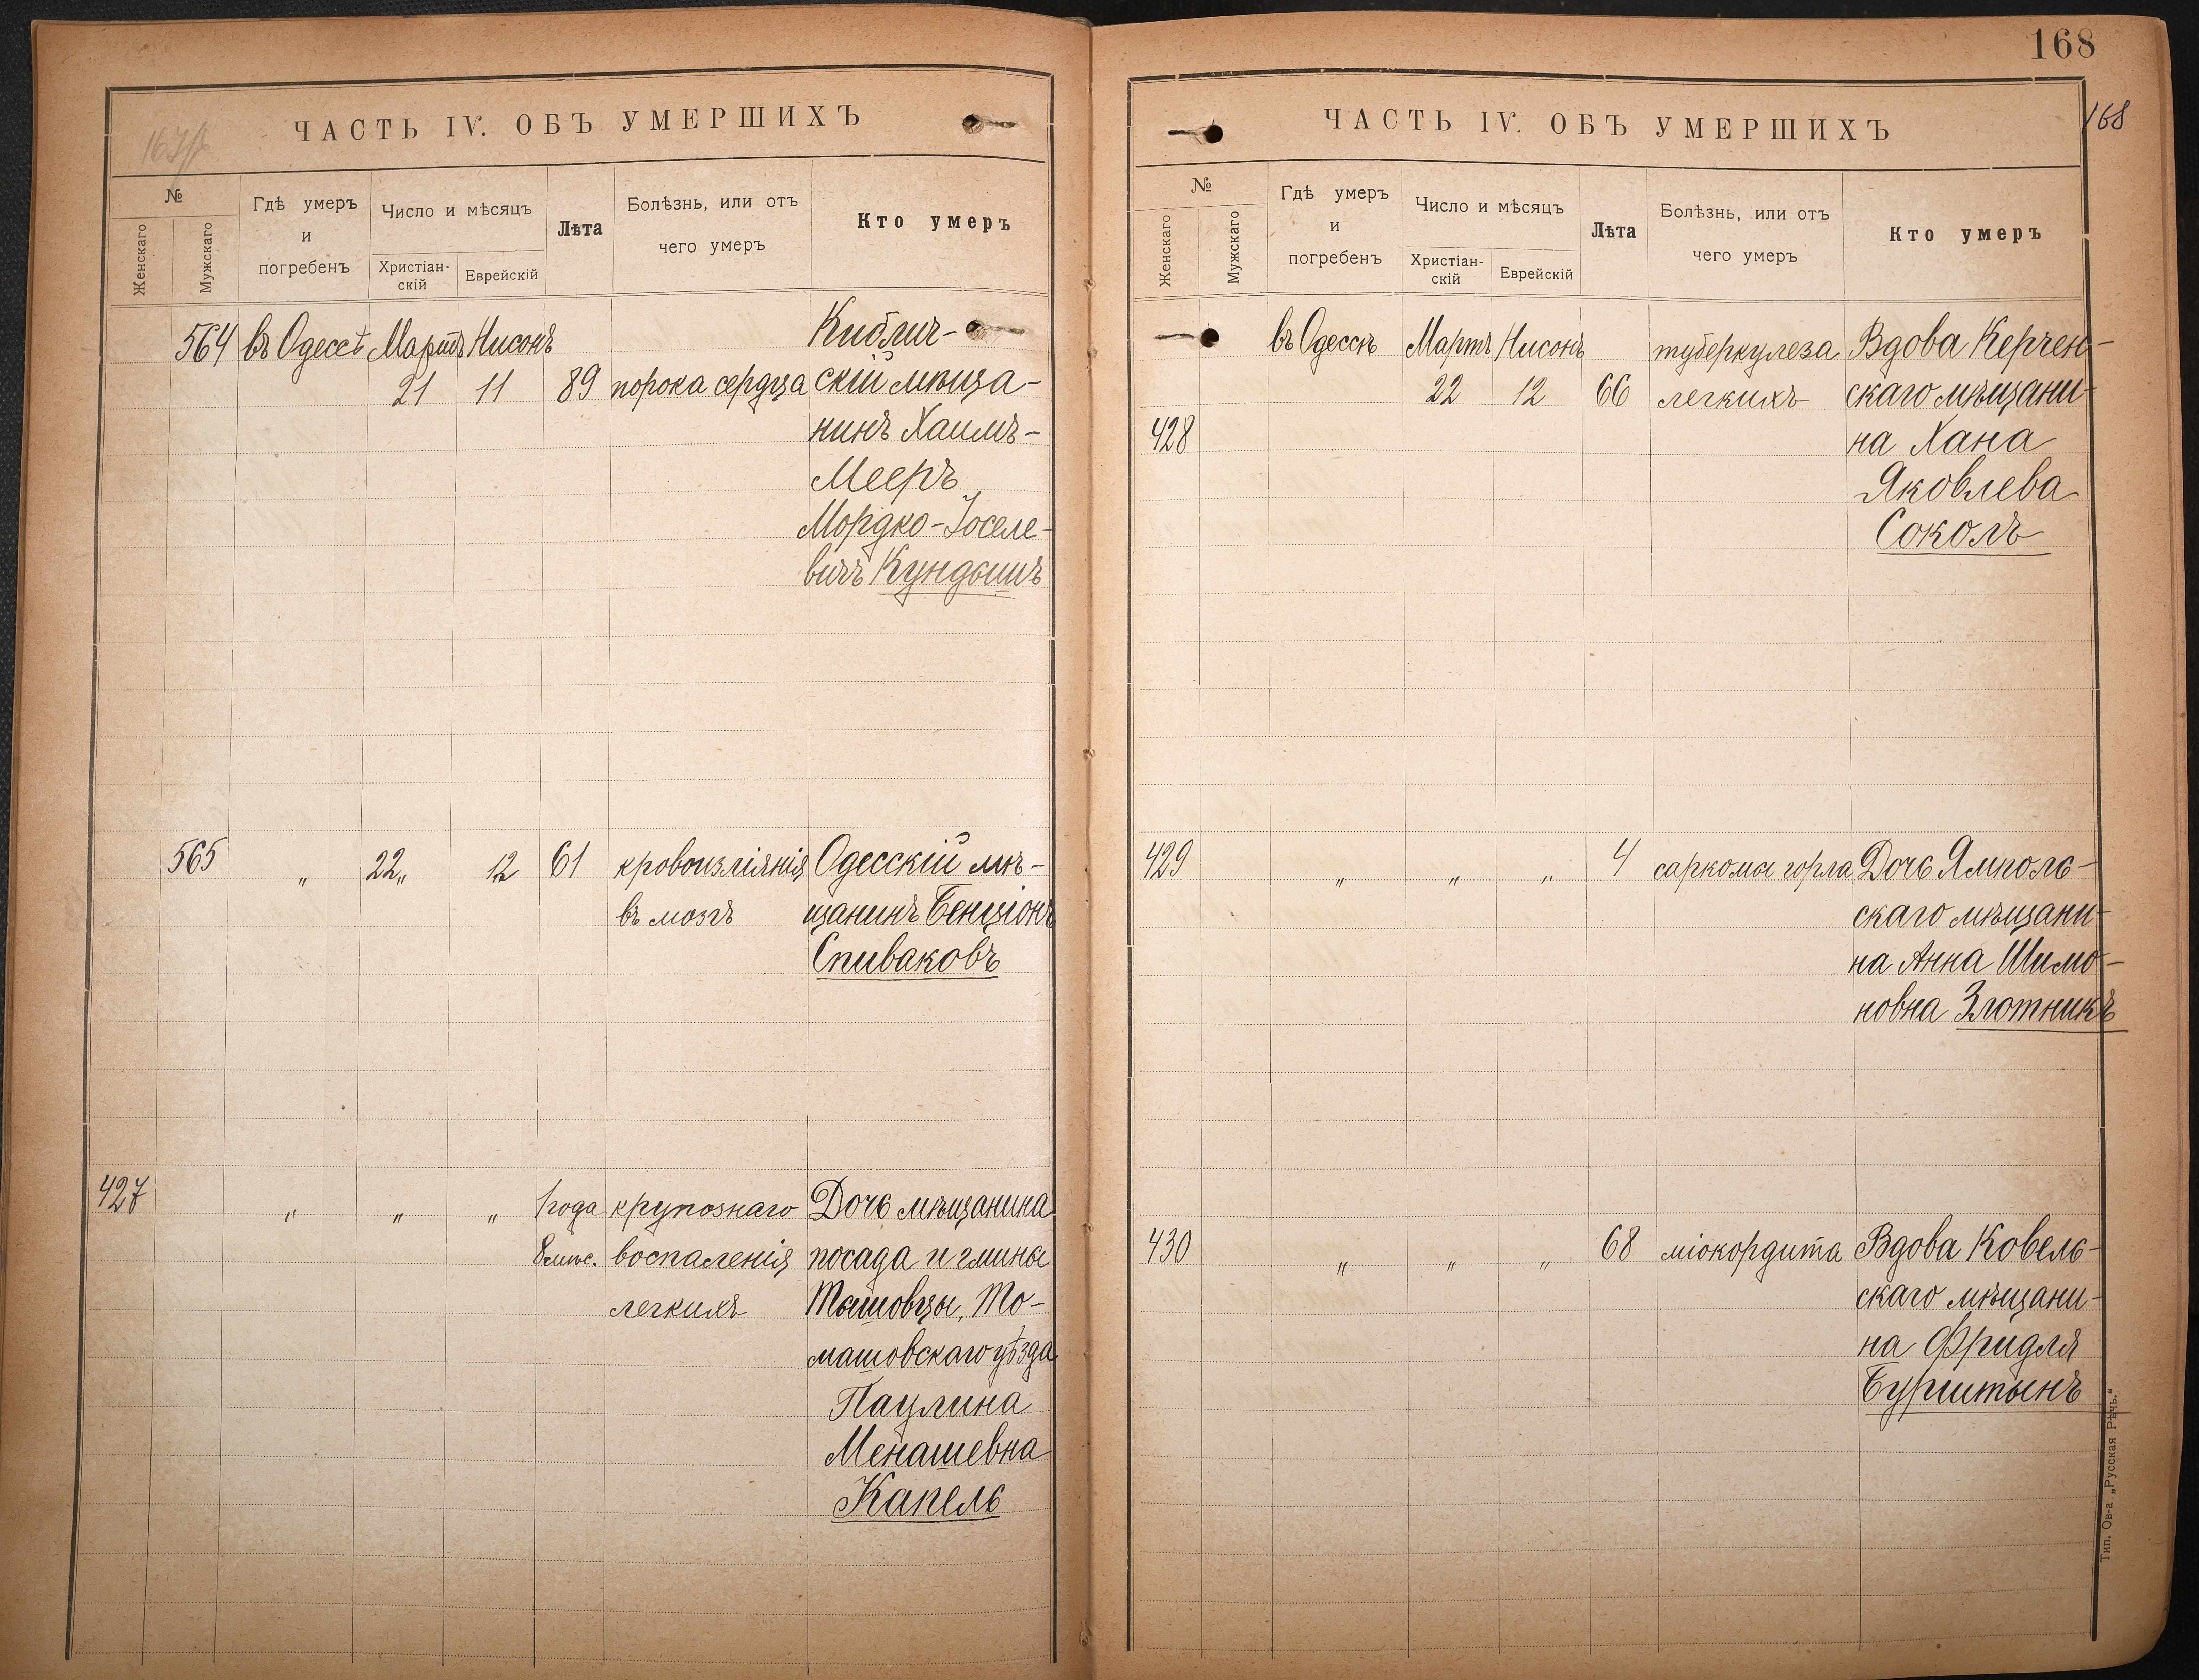 167/б
ЧАСТЬ IV. ОБЪ УМЕРШИХЪ
№
Женскаго
Мужскаго
Гдѣ умеръ
и
погребенъ
Число и мѣсяцъ
Христіан-
скій
Еврейскій
Лѣта
Болѣзнь, или отъ
чего умеръ
Кто умеръ
564 въ Одессѣ Мартъ Нисонъ Киблич-
21 11 89 порока сердца скій мѣща-
нинъ Хаимъ-
Мееръ
Мордко-Іоселе-
вичъ Кундышъ
565 „ 22„ 12 61 кровоизліянія Одесскій мѣ-
въ мозгъ щанинъ Бенціонъ
Спиваковъ
427 „ „ „ 1 года крупознаго Дочь мѣщанина
8 мѣс. воспаленія посада и гмины
легкихъ Тышовцы, То-
машовскаго уѣзда
Паулина
Менашевна
Капель
168
168
ЧАСТЬ IV. ОБЪ УМЕРШИХЪ
№
Женскаго
Мужскаго
Гдѣ умеръ
и
погребенъ
Число и мѣсяцъ
Христіан-
скій
Еврейскій
Лѣта
Болѣзнь, или отъ
чего умеръ
Кто умеръ
въ Одессѣ Мартъ Нисонъ туберкулеза Вдова Керчен-
22 12 66 легкихъ скаго мѣщани-
428 на Хана
Яковлева
Соколъ
429 „ „ „ 4 саркомы горла Дочь Ямполь-
скаго мѣщани-
на Анна Шимо-
новна Злотникъ
430 „ „ „ 68 міокордита Вдова Ковель-
скаго мѣщани-
на Фридля
Бурштынъ
Тип. Ов-а „Русская Рѣчь.“